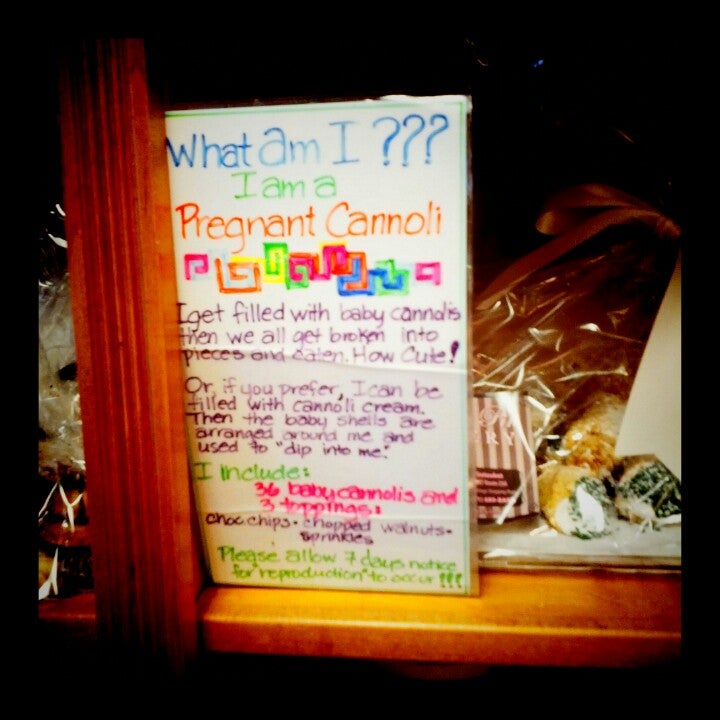 What am I ???
I am a
Pregnant Cannoli
I get filled with baby cannolis
then we all get broken into
pieces and eaten. How Cute!
Or, if you prefer, I can be
filled with cannoli cream.
Then the baby shells are
arranged around me and
used to "dip into me."
I Include:
36 baby cannolis and
3 toppings:
choc chips • chopped walnuts •
sprinkles
Please allow 7 days notice
for "reproduction" to occur !!!